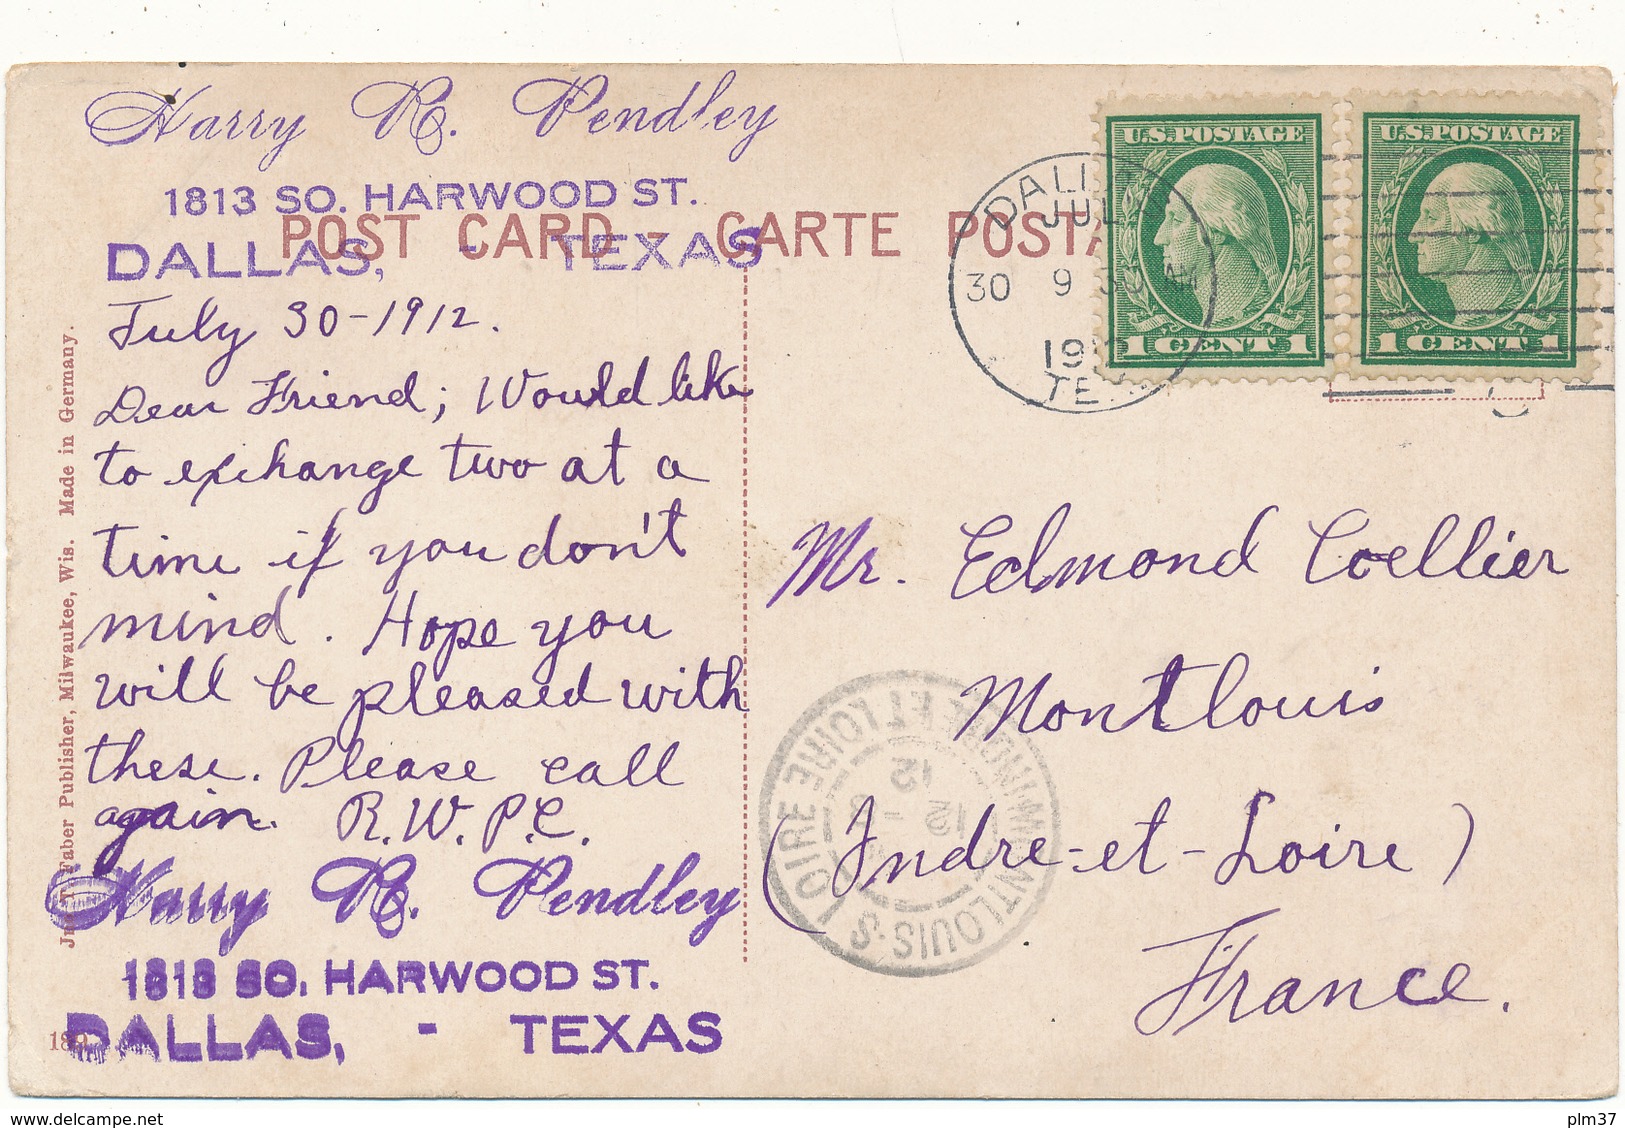 Harry R. Pendley
1813 SO. HARWOOD ST.
DALLAS, - TEXAS
POST CARD - CARTE POSTA
July 30-1912.
Dear Friend; Would like
to exchange two at a
time if you don't
mind. Hope you
will be pleased with
these. Please call
again. R.W.P.C.
Harry R. Pendley
1813 SO. HARWOOD ST.
DALLAS, - TEXAS
Faber Publisher, Milwaukee, Wis. Made in Germany.
U.S. POSTAGE
1 CENT 1
U.S. POSTAGE
1 CENT 1
DALLAS
JUL
30 9 30 AM
1912
TEX.
Mr. Edmond Coellier
Montlouis
(Indre-et-Loire)
France.
MONTLOUIS-S-LOIRE INDRE ET LOIRE
12
12
delcampe.net
plm37